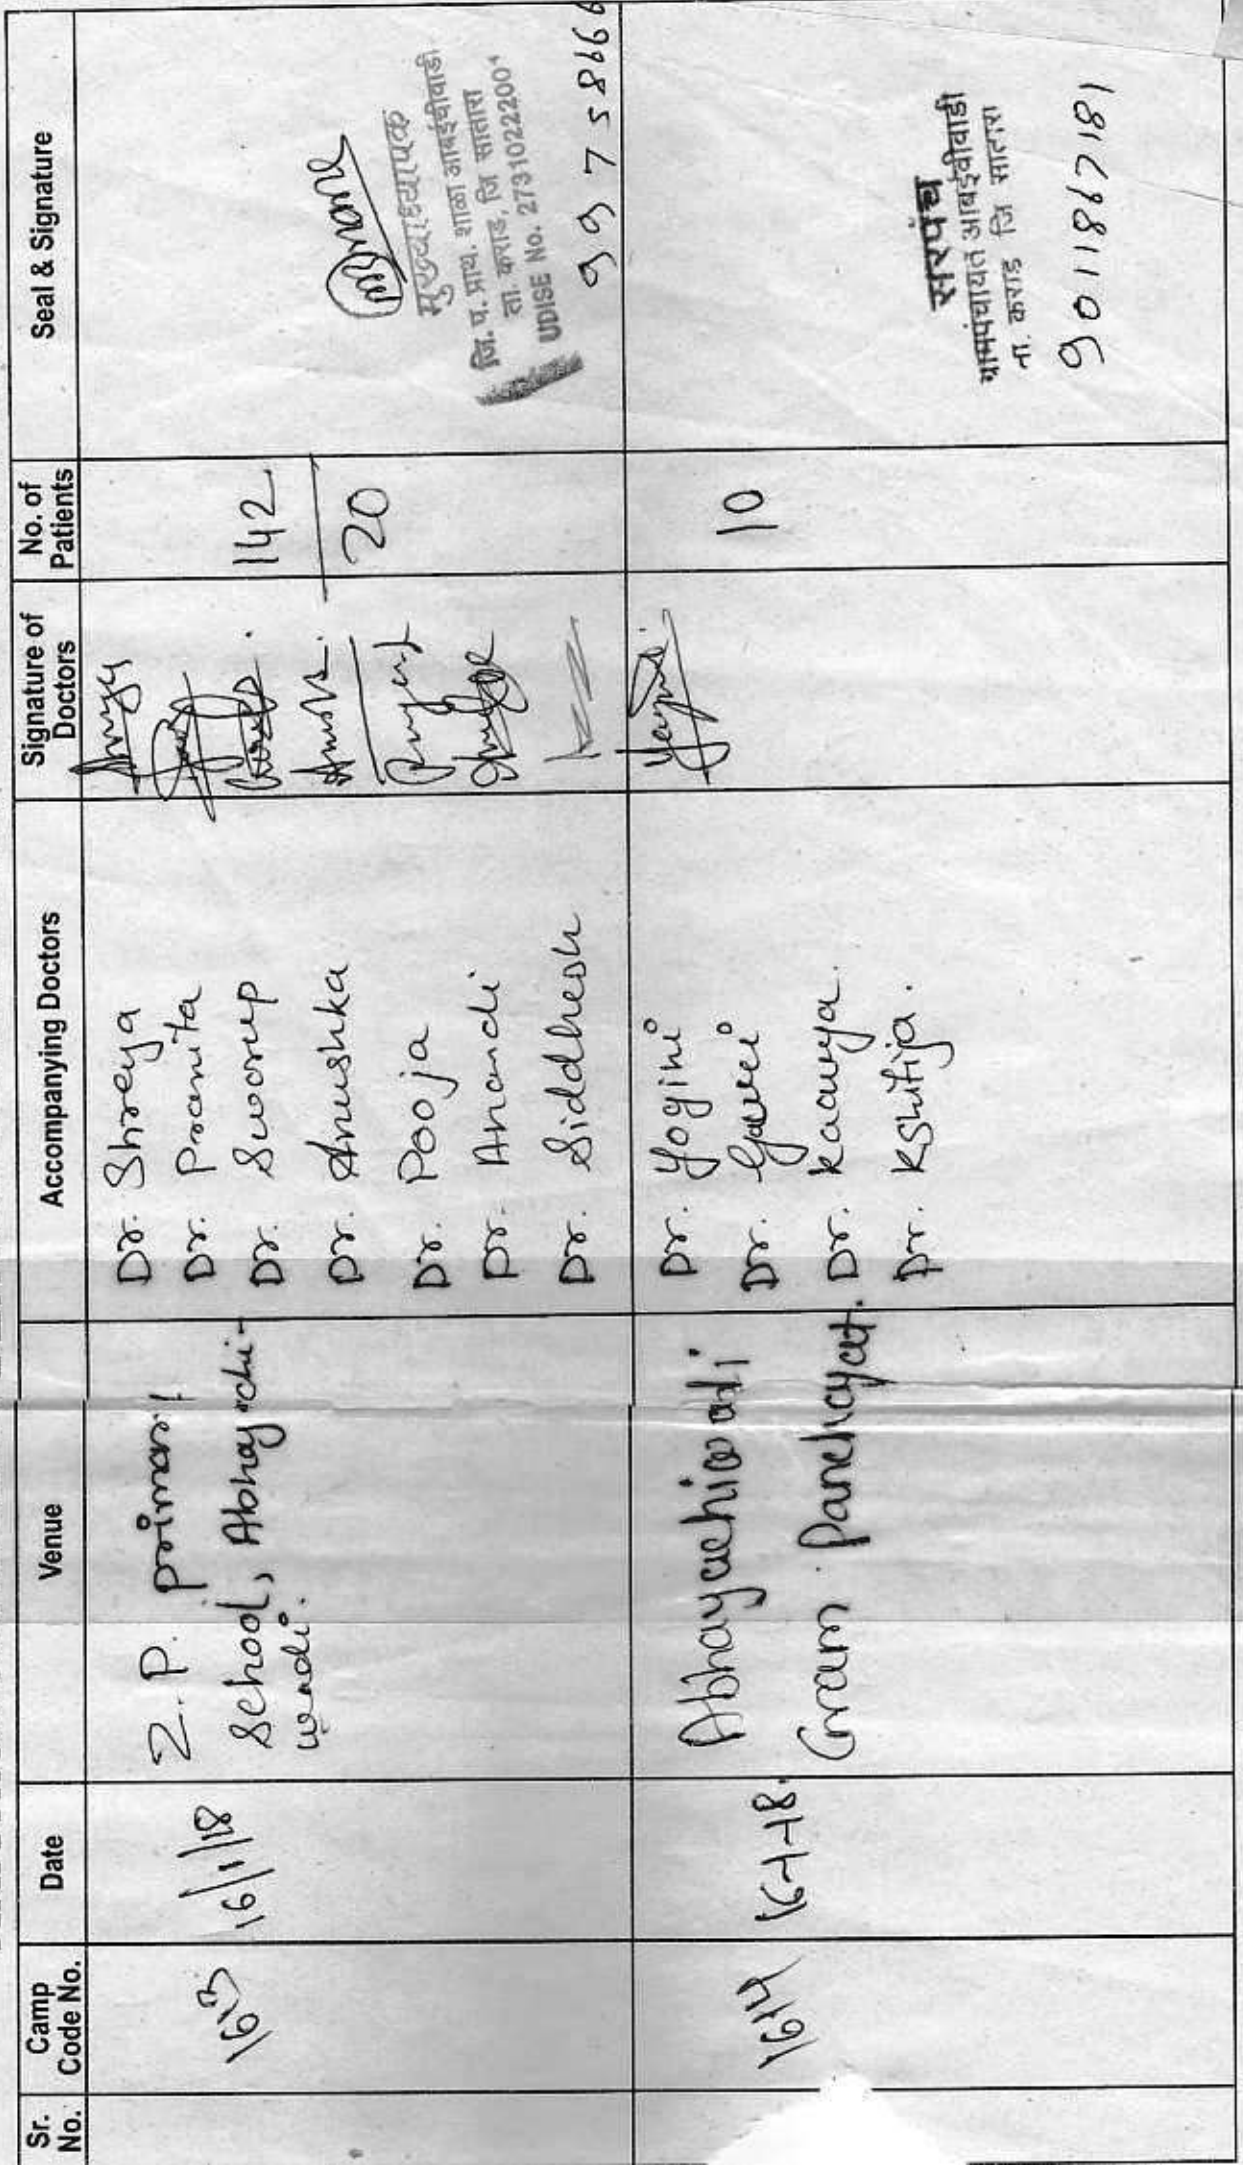 Sr. No.
Camp Code No.
Date
Venue
Accompanying Doctors
Signature of Doctors
No. of Patients
Seal & Signature
1613
16/1/18
Z.P. primary
School, Abhaychi-
wadi.
Dr. Shreya
Dr. Pranita
Dr. Swarup
Dr. Anushka
Dr. Pooja
Dr. Anandi
Dr. Siddhesh
142
20
मुख्याध्यापक
जि. प. प्राथ. शाळा आबईचीवाडी
ता. कराड, जि सातारा
UDISE No. 27310222001
1614
16-1-18.
Abhayachiwadi
Gram Panchayat.
Dr. Yogini
Dr. Gauri
Dr. Kaavya.
Dr. Kshitija.
10
सरपंच
ग्रामपंचायत आबईचीवाडी
ता. कराड जि सातारा